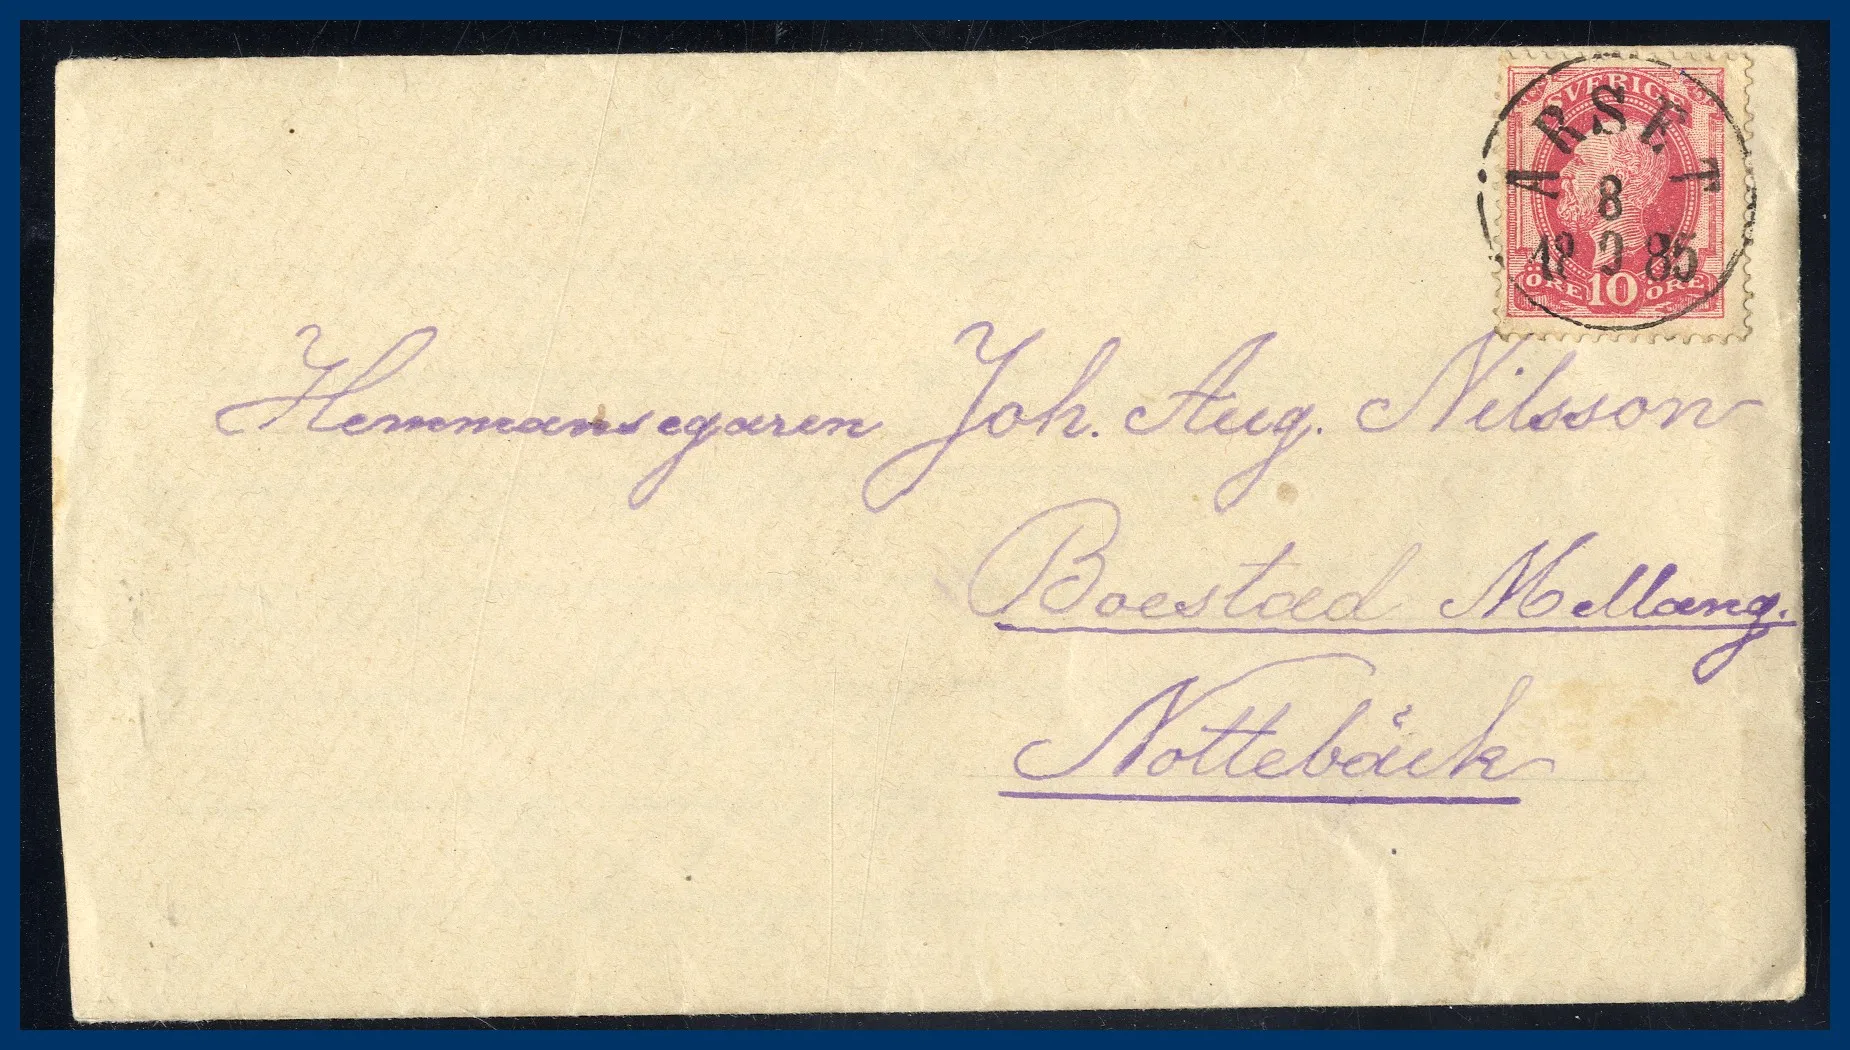 SVERIGE
ÖRE 10 ÖRE
ÅRSET
8
12 9 85
Hemmansegaren Joh. Aug. Nilsson
Boestad Mellang.
Nottebäck